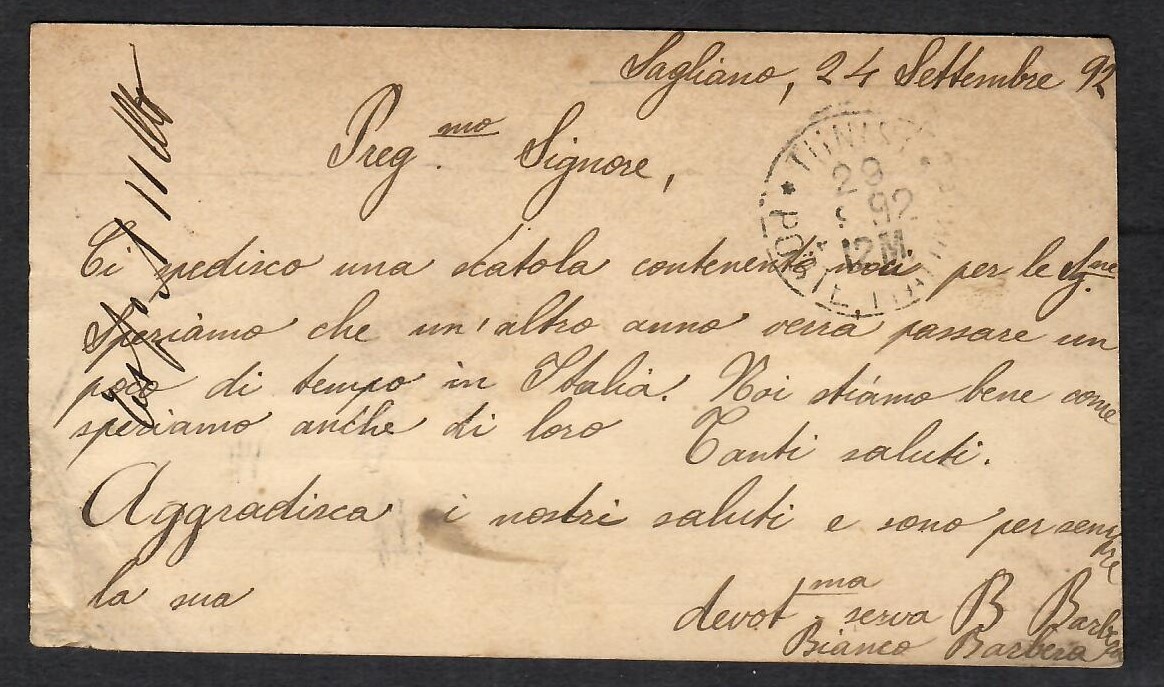 Sagliano, 24 Settembre 92
Preg.mo Signore,
TUNISI
28
S 92
12 M.
* POSTE ITALIANE
Ci spedisco una scatola contenente per le Sg.ne
Speriamo che un'altro anno verra passare un
poco di tempo in Italia. Noi stiamo bene come
speriamo anche di loro Tanti saluti.
Aggradisca i nostri saluti e sono per sempre
la sua
devot.ma serva B Barbera
Bianco Barbera